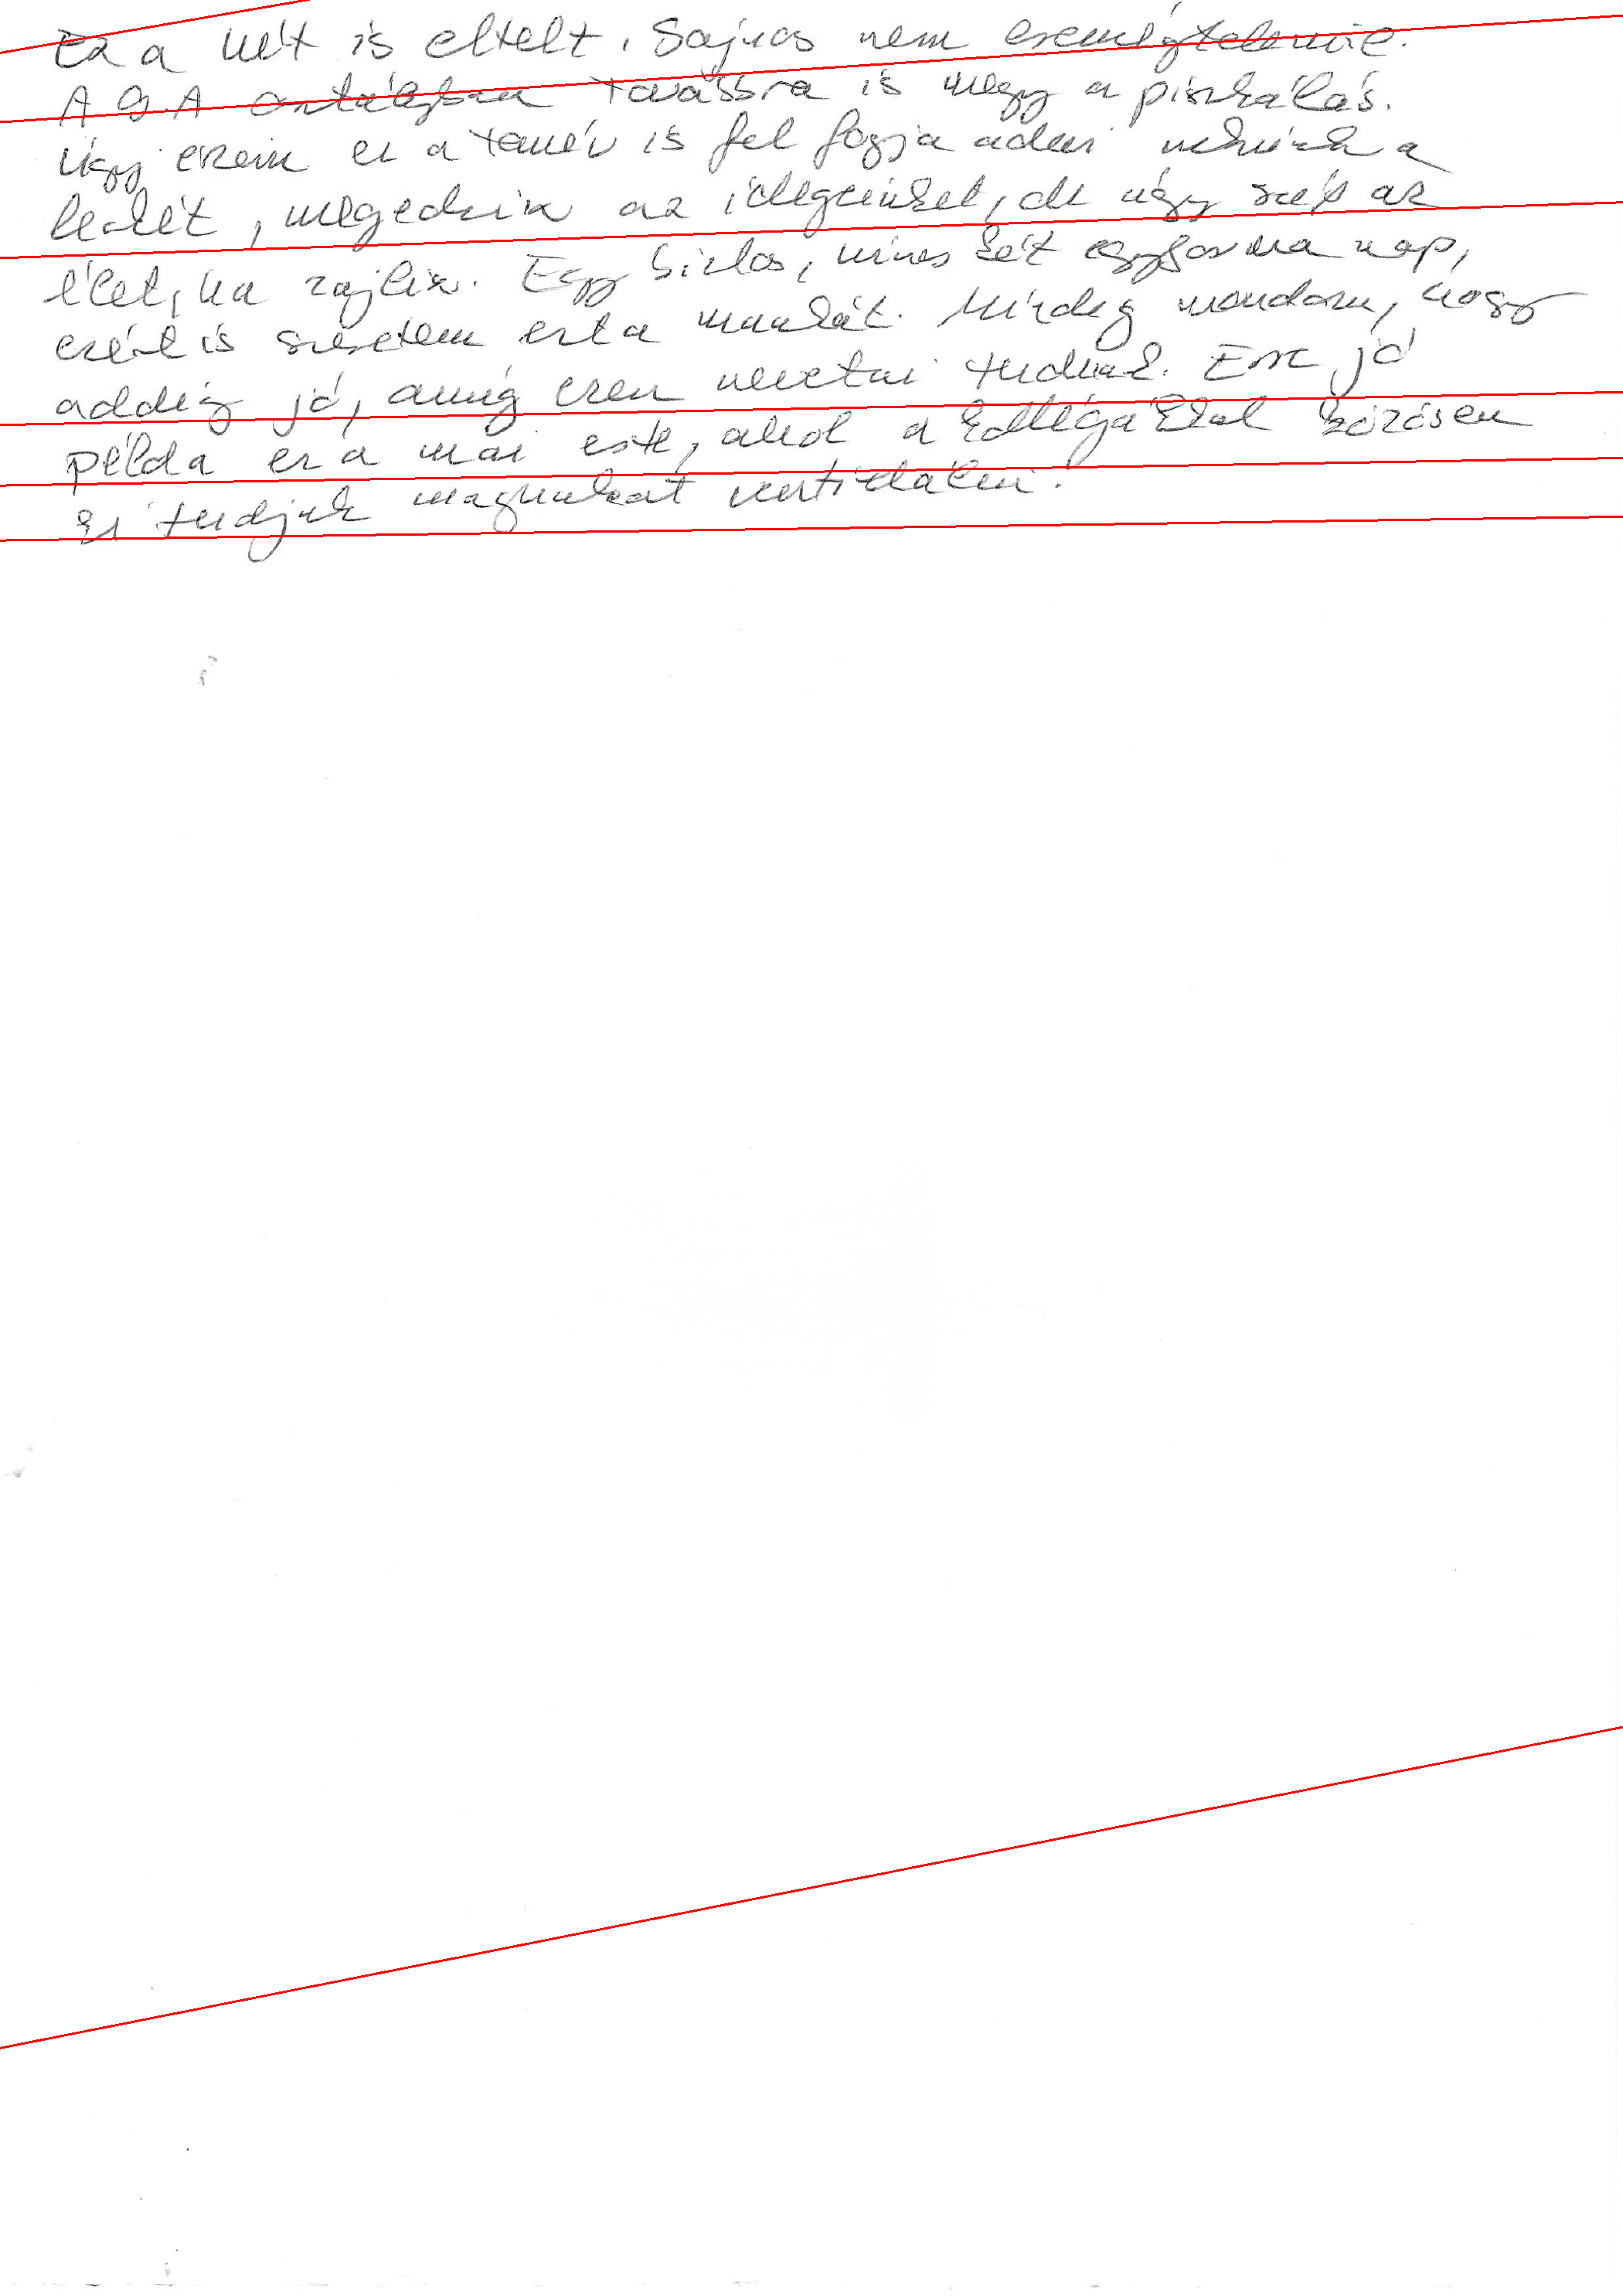 Ez a hét is eltelt. Sajnos nem eseménytelenül.
A 9.A osztályban továbbra is megy a piszkálás.
Úgy érzem ez a tanév is fel fogja adni nekünk a
leckét, megedzik az idegeinket, de úgy szép az
élet, ha zajlik. Egy biztos, nincs két egyforma nap,
ezért is szeretem ezt a munkát. Mindig mondom, hogy
addig jó, amíg ezen nevetni tudunk. Erre jó
példa ez a mai este, ahol a kollégákkal közösen
ki tudjuk magunkat ventilálni.